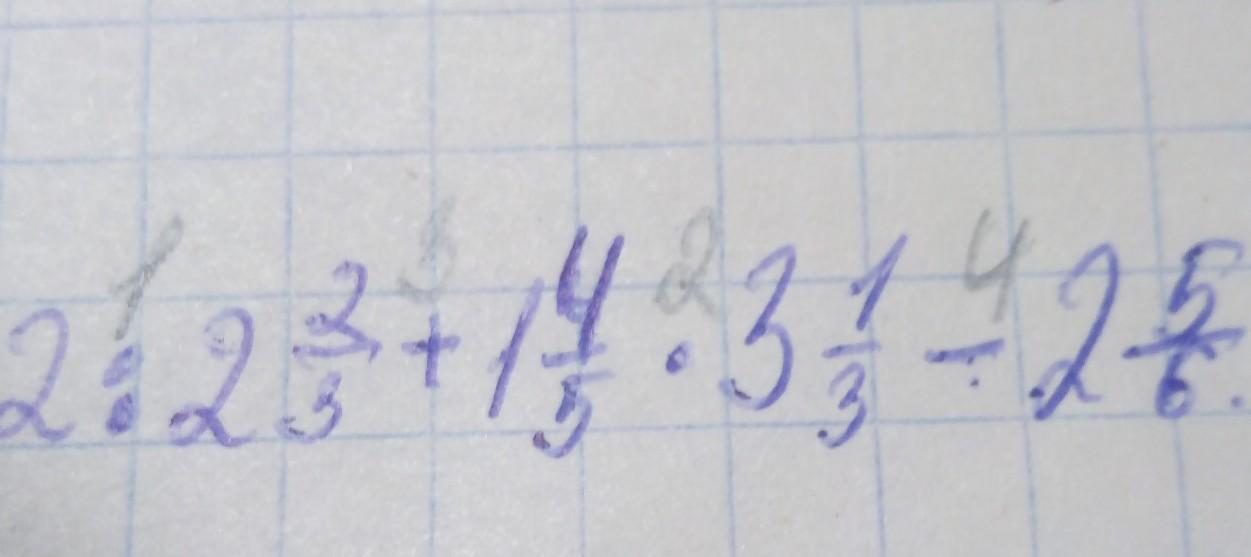 1 3 2 4
2 : 2 2/3 + 1 4/5 · 3 1/3 - 2 5/6.